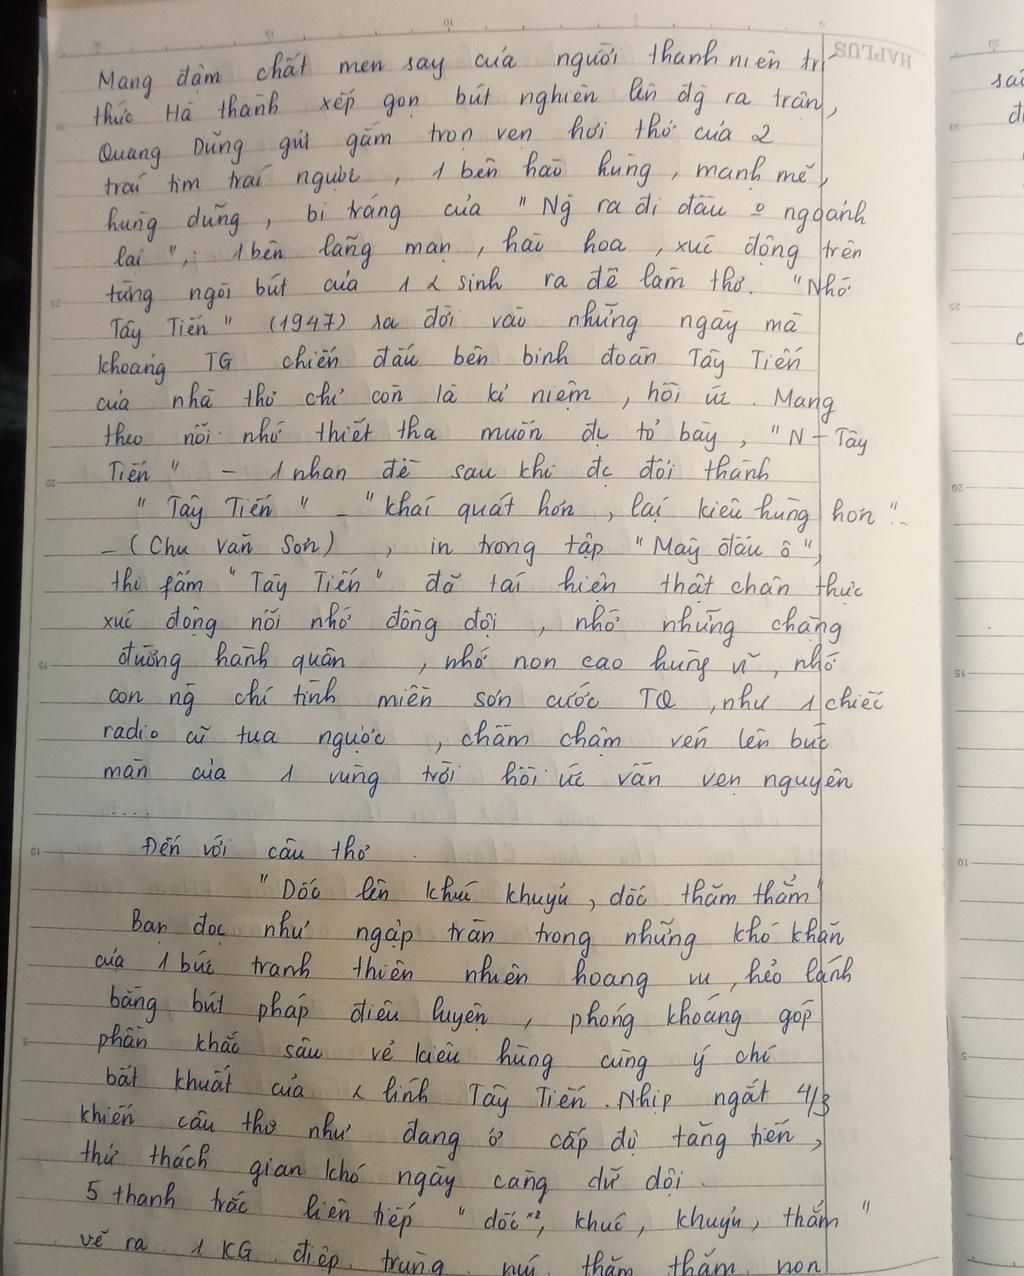 HAPLUS
Mang đậm chất men say của người thanh niên tri
thức Hà thành xếp gọn bút nghiên lên đg ra trận,
Quang Dũng gửi gắm trọn vẹn hơi thở của 2
trái tim trai người, 1 bên hào hùng, mạnh mẽ,
hùng dũng, bi tráng của "Ng ra đi đầu o ngoảnh
lại", 1 bên lãng mạn, hào hoa, xúc động trên
từng ngòi bút của 1 sinh ra để làm thơ. "Nhớ
Tây Tiến" (1947) ra đời vào những ngày mà
khoảng TG chiến đấu bên binh đoàn Tây Tiến
của nhà thơ chỉ còn là kỉ niệm, hồi ức. Mang
theo nỗi nhớ thiết tha muốn đc tỏ bày, "N - Tây
Tiến" - 1 nhan đề sau khi đc đổi thành
"Tây Tiến" - "khái quát hơn, lại kiêu hùng hơn"
- (Chu Văn Sơn), in trong tập "Mây đầu ô",
thi fẩm "Tây Tiến" đã tái hiện thật chân thực
xúc động nỗi nhớ đồng đội, nhớ những chặng
đường hành quân, nhớ non cao hùng vĩ, nhớ
con ng chí tình miền sơn cước TQ, như 1 chiếc
radio cũ tua ngược, chầm chậm vén lên bức
màn của 1 vùng trời hồi ức vẫn vẹn nguyên
.....
Đến với câu thơ
"Dốc lên khúc khuỷu, dốc thăm thẳm"
Bạn đọc như ngập tràn trong những khó khăn
của 1 bức tranh thiên nhiên hoang vu, hẻo lánh
bằng bút pháp điêu luyện, phóng khoáng góp
phần khắc sâu vẻ kiêu hùng cùng ý chí
bất khuất của lính Tây Tiến. Nhịp ngắt 4/3
khiến câu thơ như đang ở cấp độ tăng tiến,
thử thách gian khó ngày càng dữ dội.
5 thanh trắc liên tiếp "dốc"x2, khúc, khuỷu, thẳm"
vẽ ra 1 KG điệp trùng núi thăm thẳm non